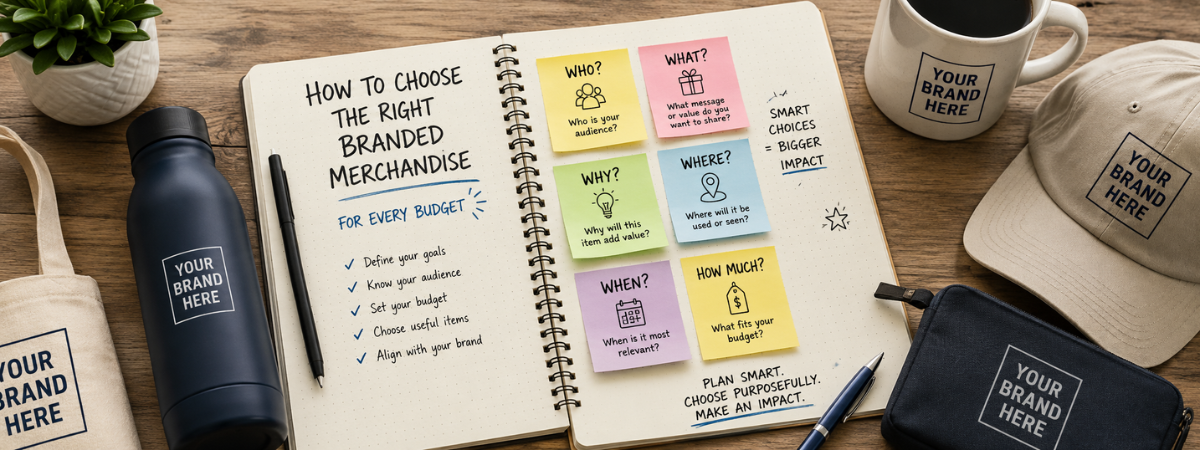 HOW TO CHOOSE
THE RIGHT
BRANDED
MERCHANDISE
FOR EVERY BUDGET
✓ Define your goals
✓ Know your audience
✓ Set your budget
✓ Choose useful items
✓ Align with your brand
WHO?
Who is your
audience?
WHAT?
What message
or value do you
want to share?
WHY?
Why will this
item add value?
WHERE?
Where will it be
used or seen?
WHEN?
When is it most
relevant?
HOW MUCH?
$
What fits your
budget?
SMART
CHOICES
= BIGGER
IMPACT
PLAN SMART.
CHOOSE PURPOSEFULLY.
MAKE AN IMPACT.
YOUR
BRAND
HERE
YOUR
BRAND
HERE
YOUR
BRAND
HERE
YOUR
BRAND
HERE
YOUR
BRAND
HERE